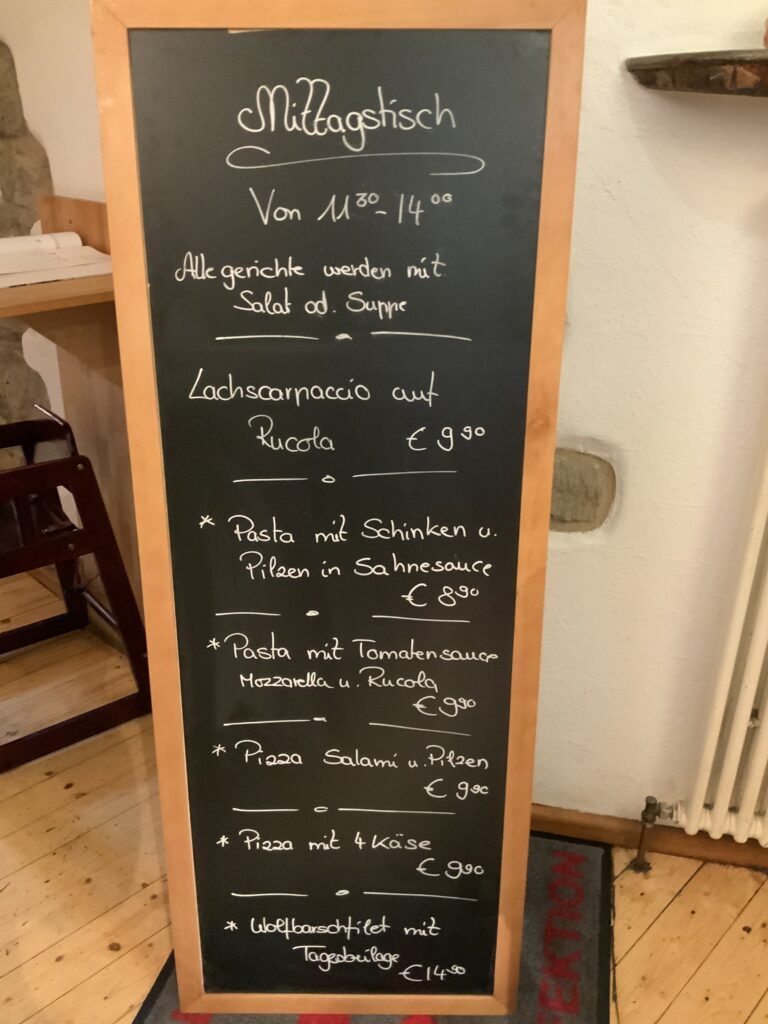 Mittagstisch
Von 11 30 - 14 00
Alle gerichte werden mit
Salat od. Suppe
Lachscarpaccio auf
Rucola € 9 90
* Pasta mit Schinken u.
Pilzen in Sahnesauce
€ 8 90
* Pasta mit Tomatensauce
Mozzarella u. Rucola
€ 9 90
* Pizza Salami u. Pilzen
€ 9 90
* Pizza mit 4 Käse
€ 9 90
* Wolfbarschfilet mit
Tagesbeilage
€ 14 90
EKTION